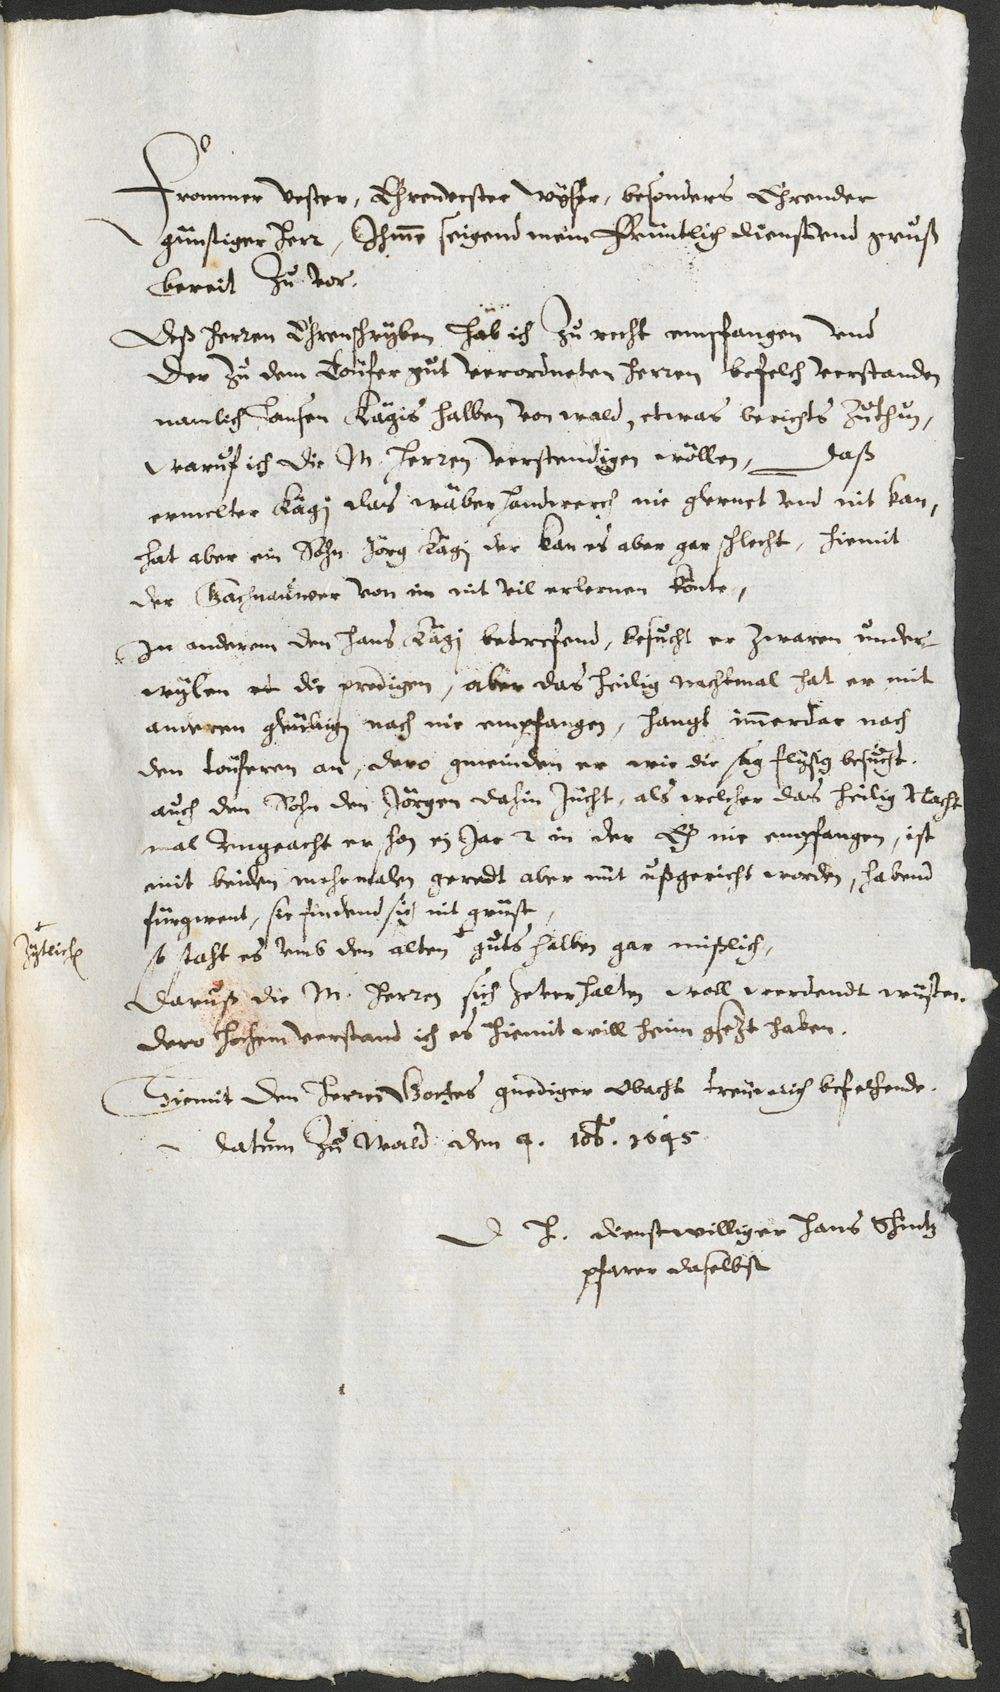 Frommer vester, Ehrenvester wyser, besonders Ehrender
günstiger Herr, Ihme seigend mein früntlich dienst und gruß
bereit zu vor.
Deß Herren Ehrenschryben hab ich zu recht empfangen und
der zu dem Töufer gut verordneten Herren befelch verstanden
namlich Hansen Kägis halben von wald, etwas berichts zuthun,
waruf ich die M. Herren verstendigen wöllen, daß
ermelter Kägj das wäber handwerch nie glernet und nit kan,
hat aber ein Sohn Jörg Kägj der kan es aber gar schlecht, hiemit
der Gachnauwer von im nit vil erlernen könte,
In anderem den Hans Kägj betrefend, besucht er zwaren under-
wylen die predigen, aber das heilig nachtmal hat er mit
anderen gleübigen nach nie empfangen, hangt immerdar nach
den töuferen an, dero gmeinden er wie die sag flysig besucht.
auch den Sohn den Jörgen dahin zücht, als welcher das heilig Nacht
mal ungeacht er schon ein Jar 2 in der Eh nie empfangen, ist
mit beiden mehrmalen geredt aber nüt ußgericht worden, habend
fürgwent, sie findend sich nit grüst,
so staht es umb den alten + guts halben gar mißlich,
+ zytlich
Daruß die M. Herren sich zeverhalten woll werdendt wüsten.
dero hochem verstand ich es hiemit will heim gsezt haben.
Hiemit den Herren Gottes gnediger obacht treüwlich befelhende.
datum zu Wald den 4. 10b. 1645
D H. dienstwilliger Hans Schutz
pfarer daselbst